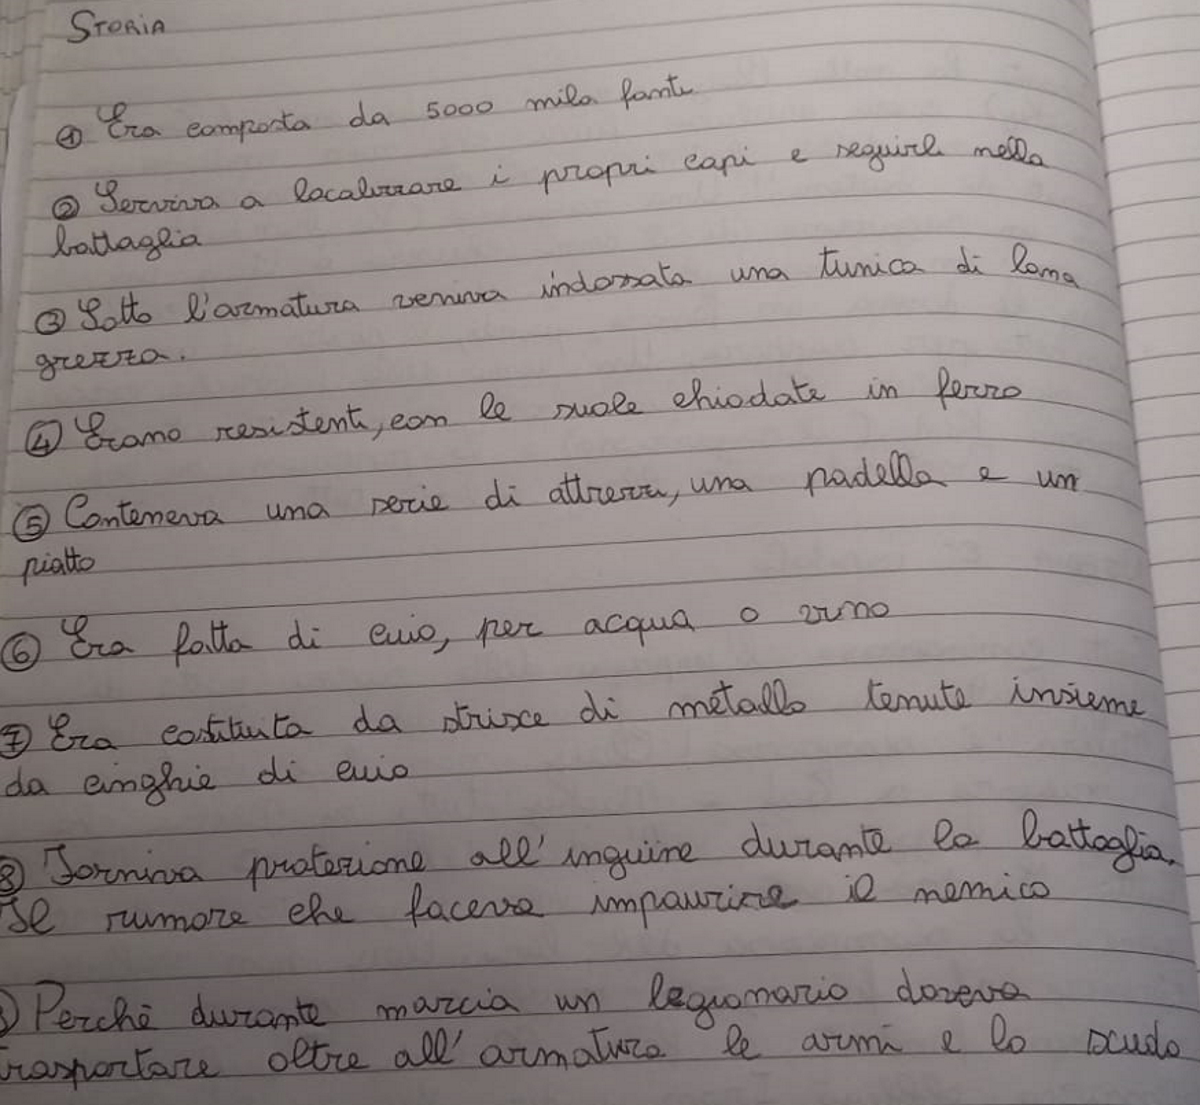 STORIA
① Era composta da 5000 mila fanti
② Serviva a localizzare i propri capi e seguirli nella
battaglia
③ Sotto l'armatura veniva indossata una tunica di lana
grezza.
④ Erano resistenti, con le suole chiodate in ferro
⑤ Conteneva una serie di attrezzi, una padella e un
piatto
⑥ Era fatta di cuio, per acqua o vino
⑦ Era costituita da strisce di metallo tenute insieme
da cinghie di cuio
⑧ Forniva protezione all'inguine durante la battaglia.
Il rumore che faceva impaurire il nemico
Perchè durante marcia un legionario doveva
trasportare oltre all'armatura le armi e lo scudo